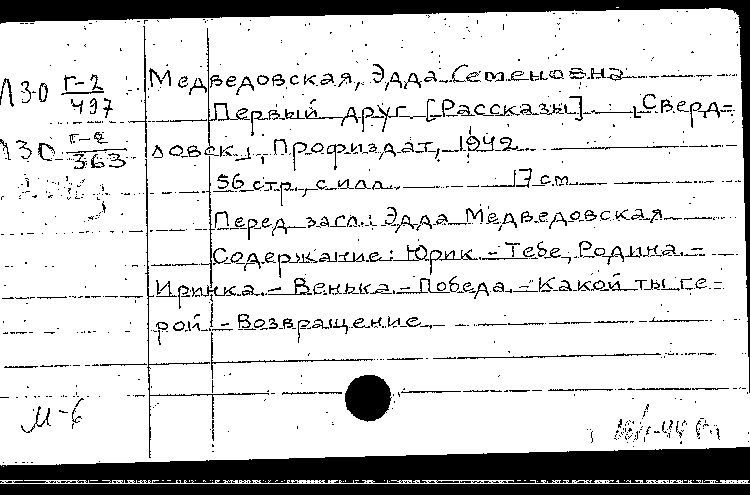 Л30 Г-2/497 Медведовская, Эдда Семеновна
Первый друг [Рассказы]. [Сверд-
Л30 Г-2/363 ловск], Профиздат, 1942
56 стр., с илл. 17 cm
Перед загл.: Эдда Медведовская
Содержание: Юрик. - Тебе, Родина. -
Иринка. - Венька. - Победа. - Какой ты ге-
рой - Возвращение.
М-6